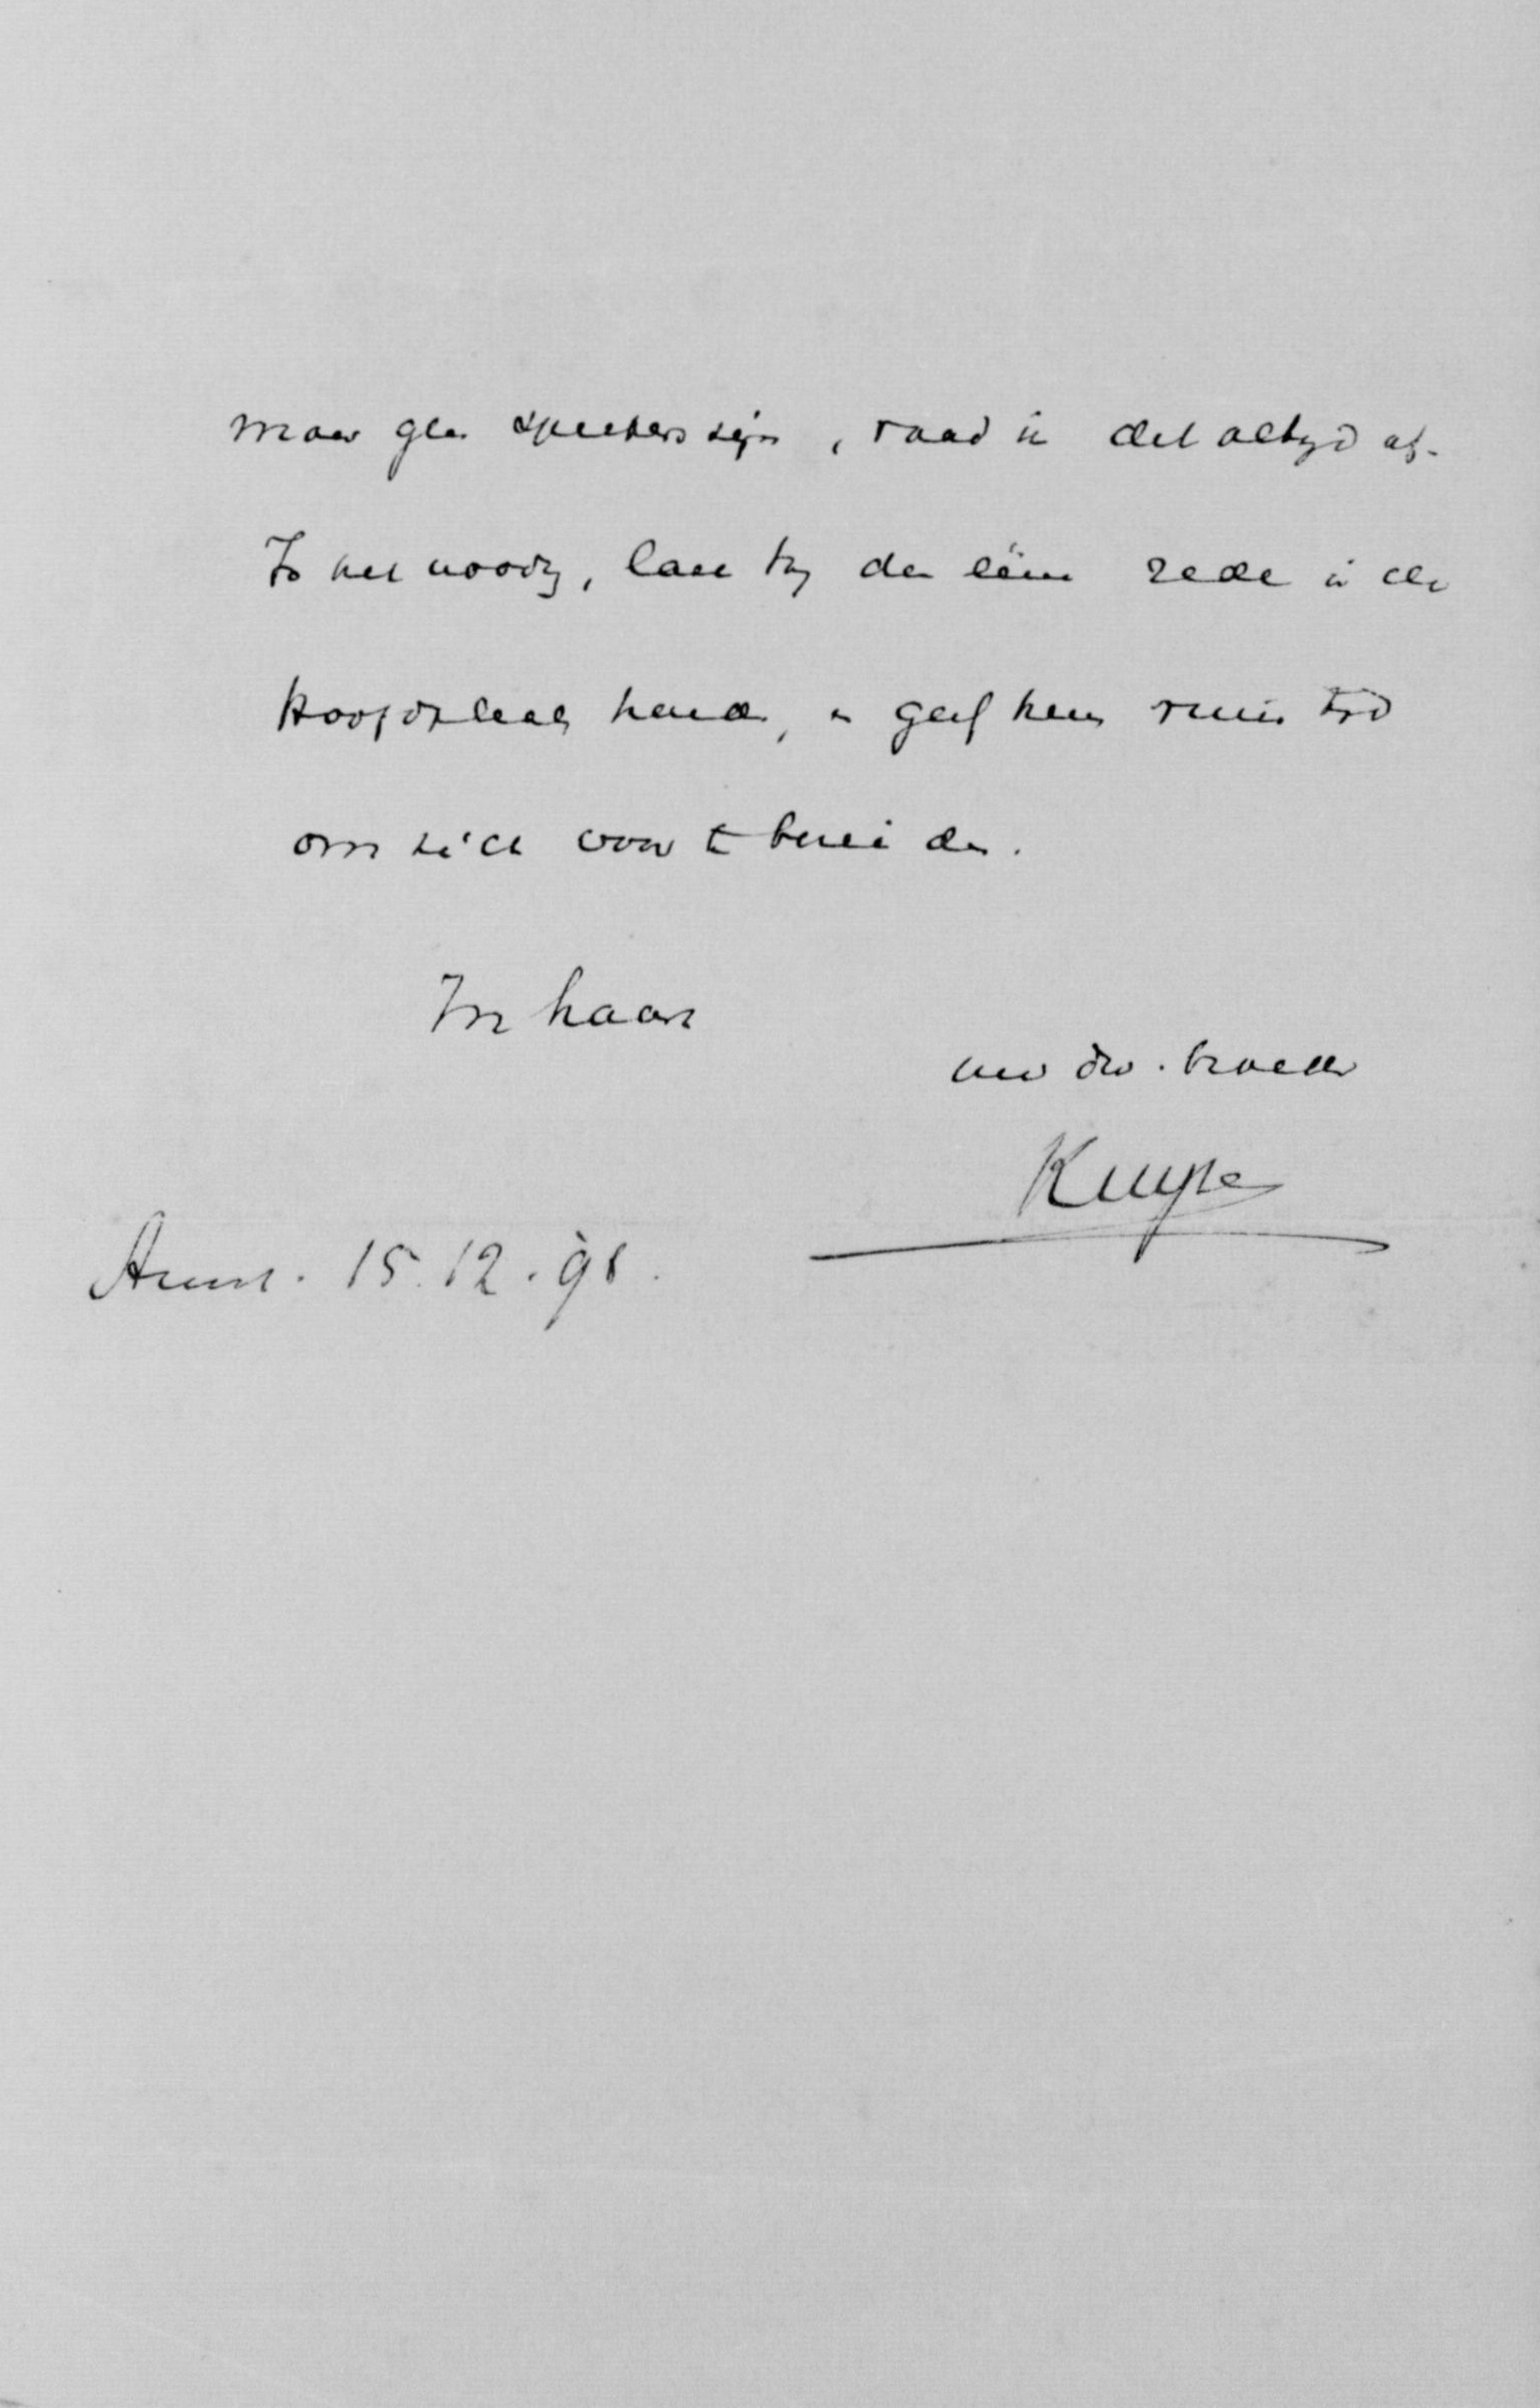 maar geen sprekers zijn, raad ik dit altijd af.
Is het noodig, laat hij dan ééne rede in de
hoofdplaats houden, en geef hem ruim tijd
om zich voor te bereiden.
In haast
uw dw. broeder
Kuyper
Amst. 15.12.98.